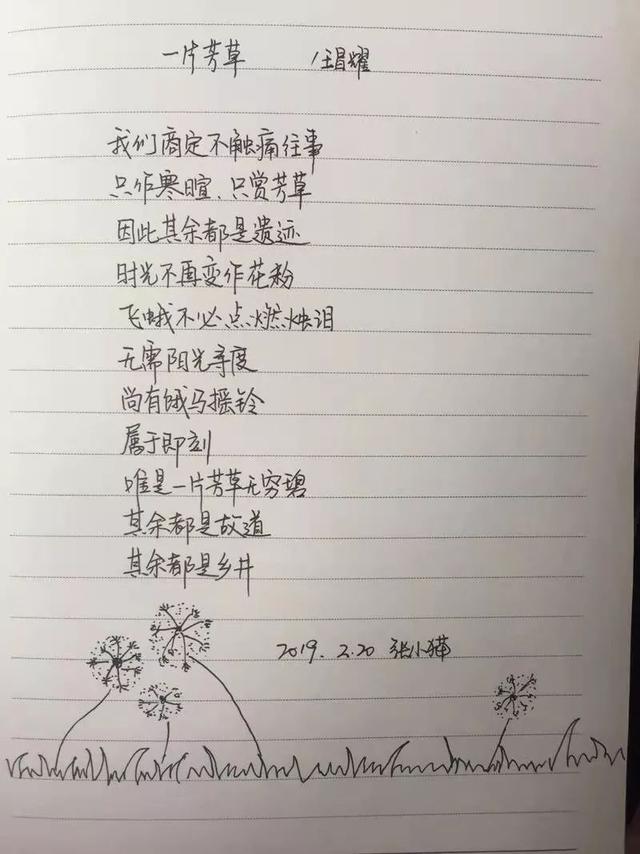 一片芳草 /昌耀
我们商定不触痛往事
只作寒暄、只赏芳草
因此其余都是遗迹
时光不再变作花粉
飞蛾不必点燃烛泪
无需阳光寻度
尚有饿马摇铃
属于即刻
唯是一片芳草无穷碧
其余都是故道
其余都是乡井
2019.2.20 张小猫